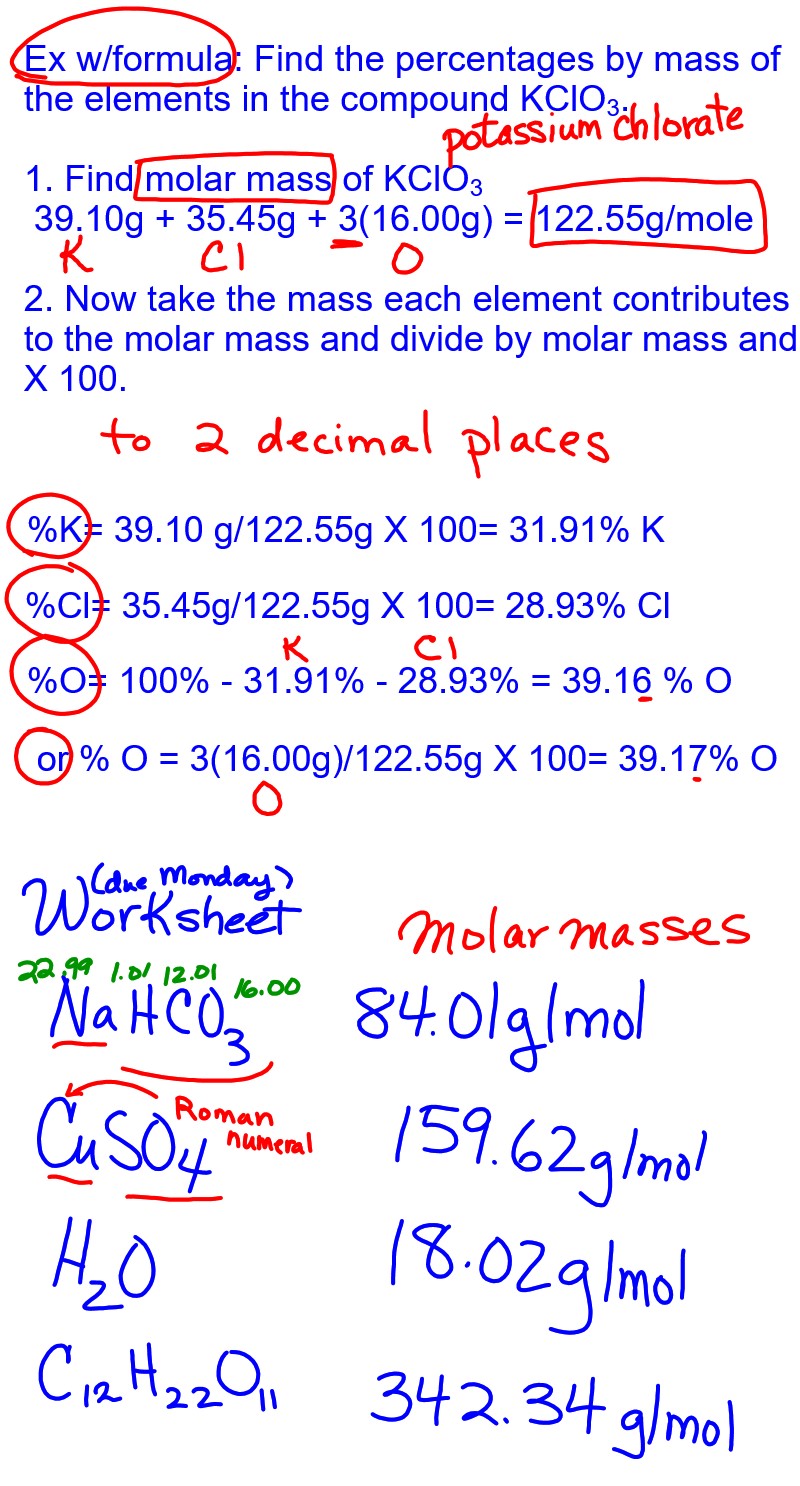 Ex w/formula: Find the percentages by mass of
the elements in the compound KClO₃.
potassium chlorate
1. Find molar mass of KClO₃
39.10g + 35.45g + 3(16.00g) = 122.55g/mole
K Cl O
2. Now take the mass each element contributes
to the molar mass and divide by molar mass and
X 100.
to 2 decimal places
%K= 39.10 g/122.55g X 100= 31.91% K
%Cl= 35.45g/122.55g X 100= 28.93% Cl
K Cl
%O= 100% - 31.91% - 28.93% = 39.16 % O
or % O = 3(16.00g)/122.55g X 100= 39.17% O
O
(due Monday)
Worksheet
Molar masses
22.99 1.01 12.01 16.00
NaHCO₃ 84.01g/mol
Roman
numeral
CuSO₄ 159.62g/mol
H₂O 18.02g/mol
C₁₂H₂₂O₁₁ 342.34 g/mol